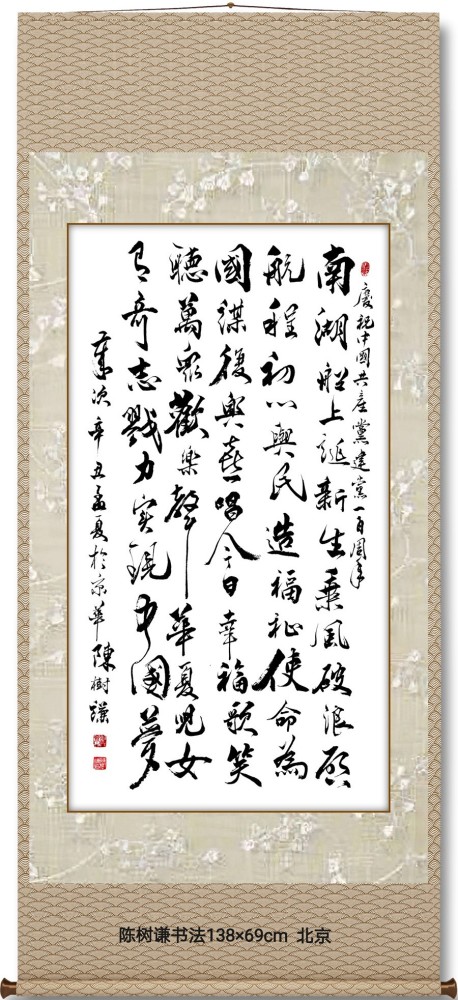 慶祝中國共產黨建黨一百周年
南湖船上誕新生乘風破浪啟
航程初心與民造福祉使命為
國謀復興喜唱今日幸福歌笑
聽萬眾歡樂聲華夏兒女
有奇志戮力實現中國夢
歲次辛丑孟夏於京華陳樹謙
陈树谦书法138×69cm 北京